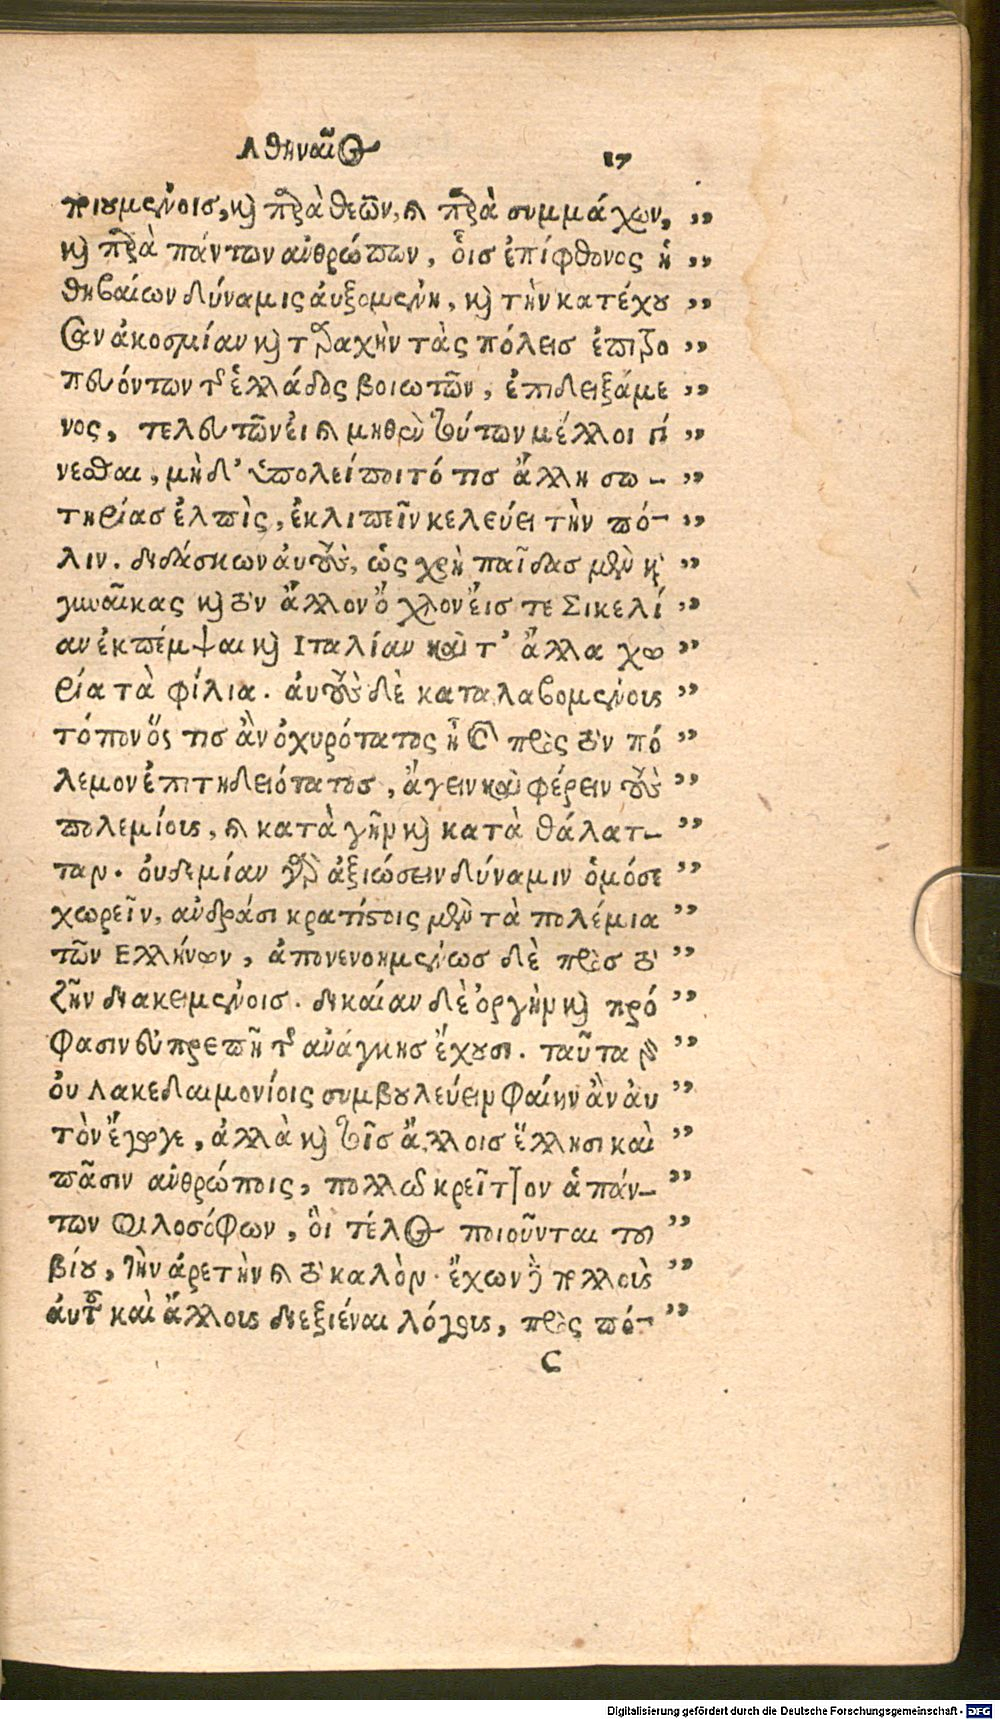 Ἀθηναῖος 17
τριουμένοις, καὶ παρὰ θεῶν, καὶ παρὰ συμμάχων, ”
καὶ παρὰ πάντων ἀνθρώπων, οἷς ἐπίφθονος ἡ ”
θηβαίων δύναμις ἀυξομένη, καὶ τὴν κατέχου ”
σαν ἀκοσμίαν καὶ ταραχὴν τὰς πόλεις ἐπιτρο ”
πευόντων τῆς ἑλλάδος βοιωτῶν, ἐπιδειξάμε ”
νος, τελευτῶν εἰ καὶ μηθὲν τούτων μέλλοι γί ”
νεσθαι, μὴδ’ ὑπολείποιτό τις ἄλλη σω - ”
τηρίας ἐλπὶς, ἐκλιπεῖν κελεύει τὴν πό- ”
λιν. διδάσκων ἀυτοὺς, ὡς χρὴ παῖδας μὲν καὶ ”
γυναῖκας καὶ τὸν ἄλλον ὄχλον εἴς τε Σικελί ”
αν ἐκπέμψαι καὶ Ιταλίαν καὶ τ’ ἄλλα χω ”
ρία τὰ φίλια. ἀυτοὺς δὲ καταλαβομένους ”
τόπον ὅς τις ἂν ὀχυρότατος ᾖ καὶ πρὸς τὸν πό ”
λεμον ἐπιτηδειότατος, ἄγειν καὶ φέρειν τοὺς ”
πολεμίους, καὶ κατὰ γῆν καὶ κατὰ θάλατ- ”
ταν. ὀυδεμίαν γὰρ ἀξιώσειν δύναμιν ὁμόσε ”
χωρεῖν, ἀνδράσι κρατίστοις μὲν τὰ πολέμια ”
τῶν Ελλήνων, ἀπονενοημένως δὲ πρὸς τὸ ”
ζῆν διακειμένοις. δικαίαν δὲ ὀργὴν καὶ πρό ”
φασιν εὐπρεπῆ τῆς ἀνάγκης ἔχουσι. ταῦτα γὰρ ”
ὀυ Λακεδαιμονίοις συμβουλεύειν φαίην ἂν ἀυ ”
τὸν ἔγωγε, ἀλλὰ καὶ τοῖς ἄλλοις ἕλλησι καὶ ”
πᾶσιν ἀνθρώποις, πολλῷ κρεῖττον ἁπάν- ”
των φιλοσόφων, ὃι τέλος ποιοῦνται τοῦ ”
βίου, τὴν ἀρετὴν καὶ τὸ καλὸν. ἔχων δὲ πολλοὺς ”
ἀυτοῦ καὶ ἄλλους διεξιέναι λόγους, πρὸς πό- ”
C
Digitalisierung gefördert durch die Deutsche Forschungsgemeinschaft - DFG